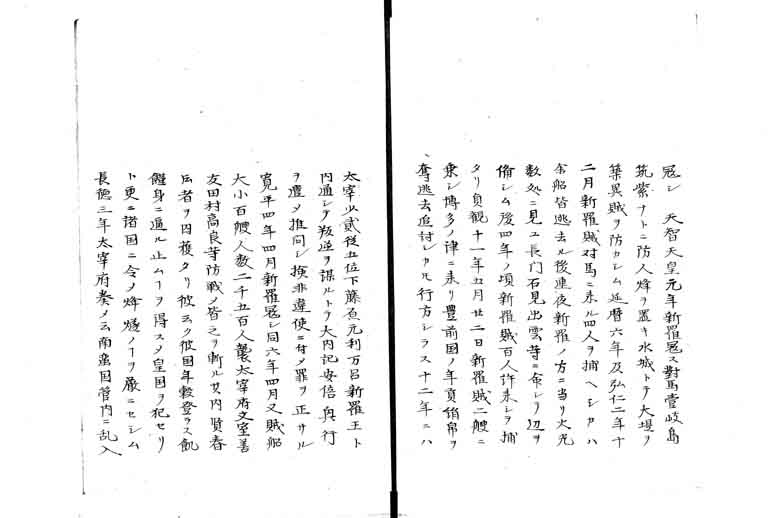 寇シ 天智天皇元年新羅寇ス對馬壹岐島
筑紫ナトニ防人烽ヲ置キ水城トテ大堤ヲ
築異賊ヲ防カシム延暦六年及弘仁二年十
二月新羅賊対馬ニ来ル四人ヲ捕ヘシカハ
余船皆逃去ル後連夜新羅ノ方ニ当リ火光
数処ニ見ユ長門石見出雲等ニ命シテ辺ヲ
備シム後四年ノ頃新羅賊百人許来シヲ捕
タリ貞観十一年五月廿二日新羅賊二艘ニ
乗シ博多ノ津ニ来リ豊前国ノ年貢絹帛ヲ
奪逃去追討シカ𪜈行方シラス十二年ニハ
太宰少貳従五位下藤原元利万呂新羅王ト
内通シテ叛逆ヲ謀ルトテ大内記安倍興行
ヲ遣メ推問シ検非違使ニ付メ罪ヲ正サル
寛平四年四月新羅寇シ同六年四月又賊船
大小百艘人数二千五百人襲太宰府文室善
友田村高良等防戦ノ皆之ヲ斬ル其内賢春
ト更ニ諸国ニ令メ烽燧ノヿヲ厳ニセシム
長徳三年太宰府奏メ云南蛮国管内ニ乱入